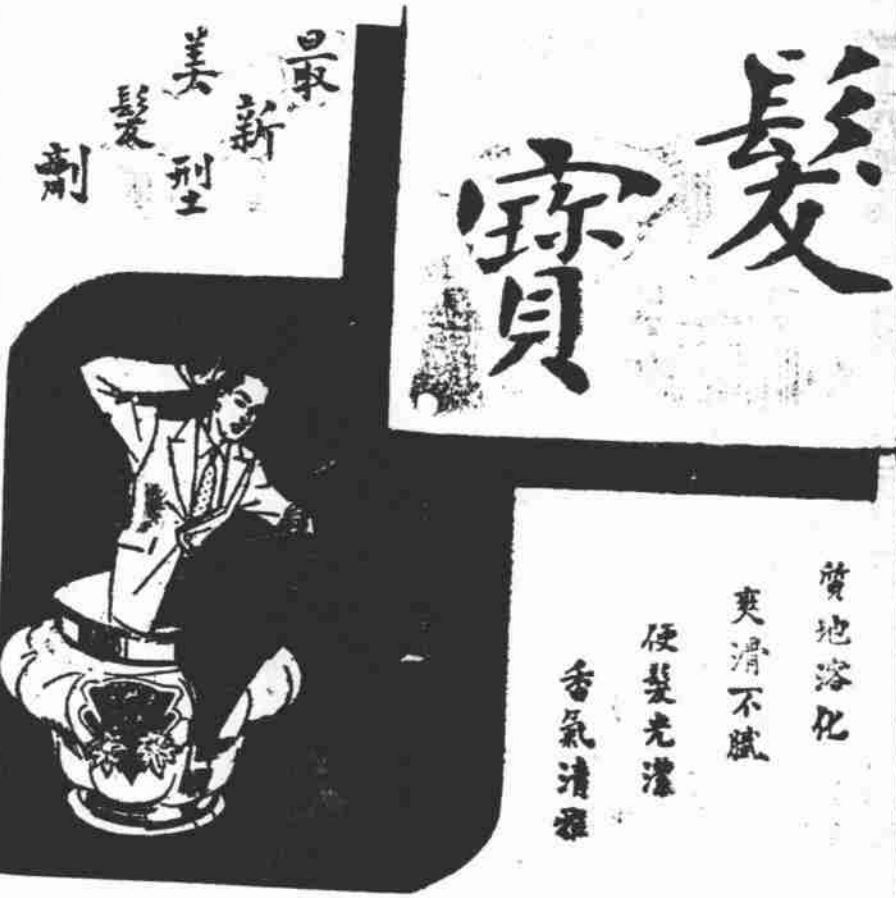 髮寶
最新型
美髮劑
質地溶化
爽滑不膩
使髮光潔
香氣清雅